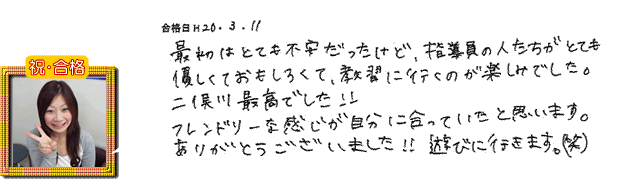 合格日H20.3.11
最初はとても不安だったけど、指導員の人たちがとても
優しくておもしろくて、教習に行くのが楽しみでした。
二俣川最高でした!!
フレンドリーな感じが自分に合っていたと思います。
ありがとうございました!! 遊びに行きます。(笑)
祝・合格